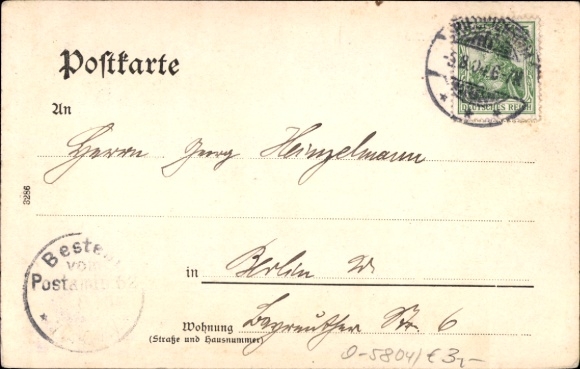 Postkarte
-5.8.04.6-7N
DEUTSCHES REICH
An
Herrn Georg Heinzelmann
3286
Bestellt
vom
Postamte
in Berlin W
Wohnung Bayreuther Str. 6
(Straße und Hausnummer)
0-5804/€3,-